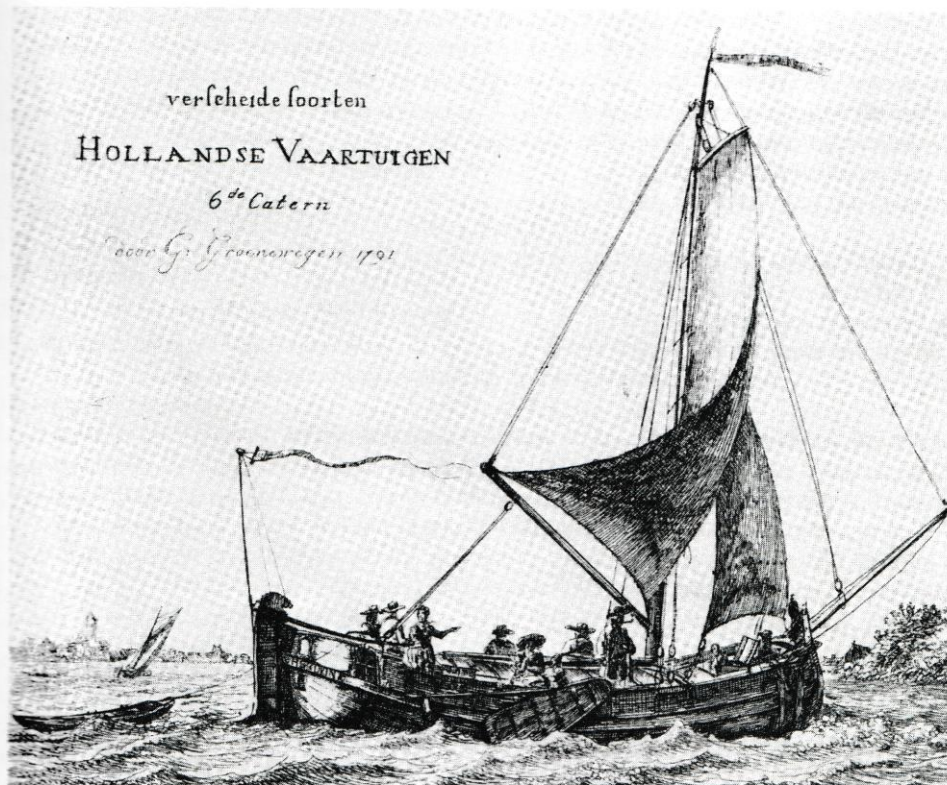 verſcheide ſoorten
HOLLANDSE VAARTUIGEN
6de Catern
door G: Groenewegen 1791